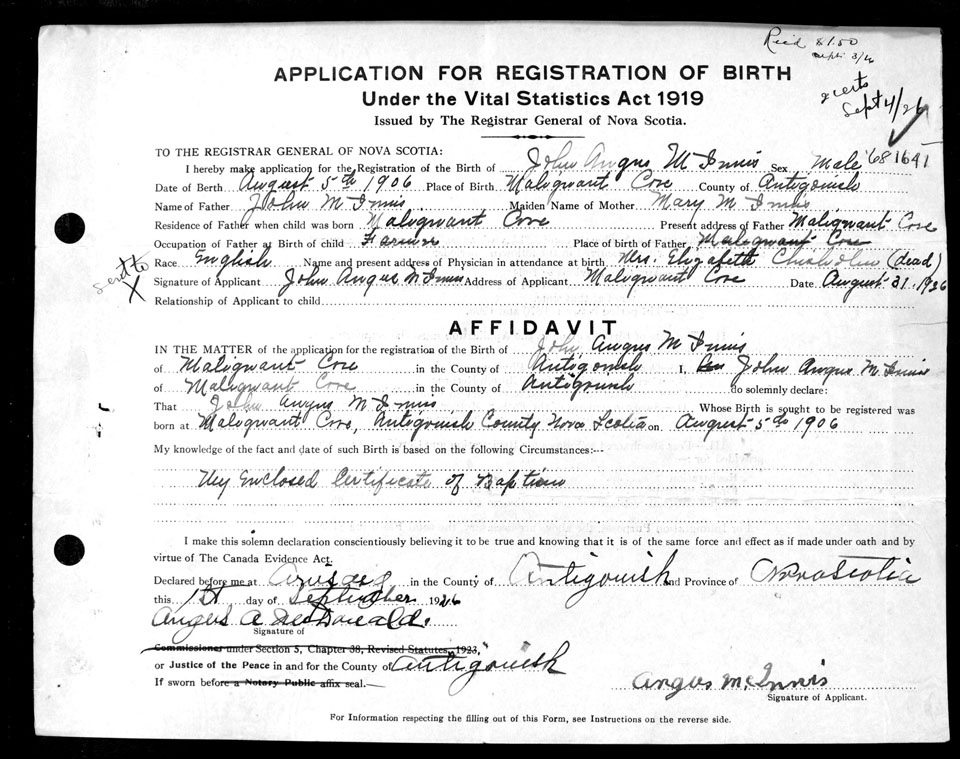 Rec'd $1.50
Sept 3/26
2 certs
Sept 4/26
APPLICATION FOR REGISTRATION OF BIRTH
Under the Vital Statistics Act 1919
Issued by The Registrar General of Nova Scotia.
TO THE REGISTRAR GENERAL OF NOVA SCOTIA:
I hereby make application for the Registration of the Birth of John Angus McInnis Sex Male '681641
Date of Berth August 5th 1906 Place of Birth Malignant Cove County of Antigonish
Name of Father John McInnis Maiden Name of Mother Mary McInnis
Residence of Father when child was born Malignant Cove Present address of Father Malignant Cove
Occupation of Father at Birth of child Farmer Place of birth of Father Malignant Cove
sent to X
Race English Name and present address of Physician in attendance at birth Mrs. Elizabeth Chisholm (dead)
Signature of Applicant John Angus McInnis Address of Applicant Malignant Cove Date August 31. 1926
Relationship of Applicant to child
AFFIDAVIT
IN THE MATTER of the application for the registration of the Birth of John Angus McInnis
of Malignant Cove in the County of Antigonish I, John Angus McInnis
of Malignant Cove in the County of Antigonish do solemnly declare:
That John Angus McInnis Whose Birth is sought to be registered was
born at Malignant Cove, Antigonish County Nova Scotia on August 5th 1906
My knowledge of the fact and date of such Birth is based on the following Circumstances:--
My Enclosed Certificate of Baptism
I make this solemn declaration conscientiously believing it to be true and knowing that it is of the same force and effect as if made under oath and by
virtue of The Canada Evidence Act.
Declared before me at Arisaig in the County of Antigonish and Province of Nova Scotia
this 1st day of September 1926
Angus A McDonald.
Signature of
Commissioner under Section 5, Chapter 38, Revised Statutes, 1923,
or Justice of the Peace in and for the County of Antigonish
If sworn before a Notary Public affix seal.
Angus McInnis
Signature of Applicant.
For Information respecting the filling out of this Form, see Instructions on the reverse side.